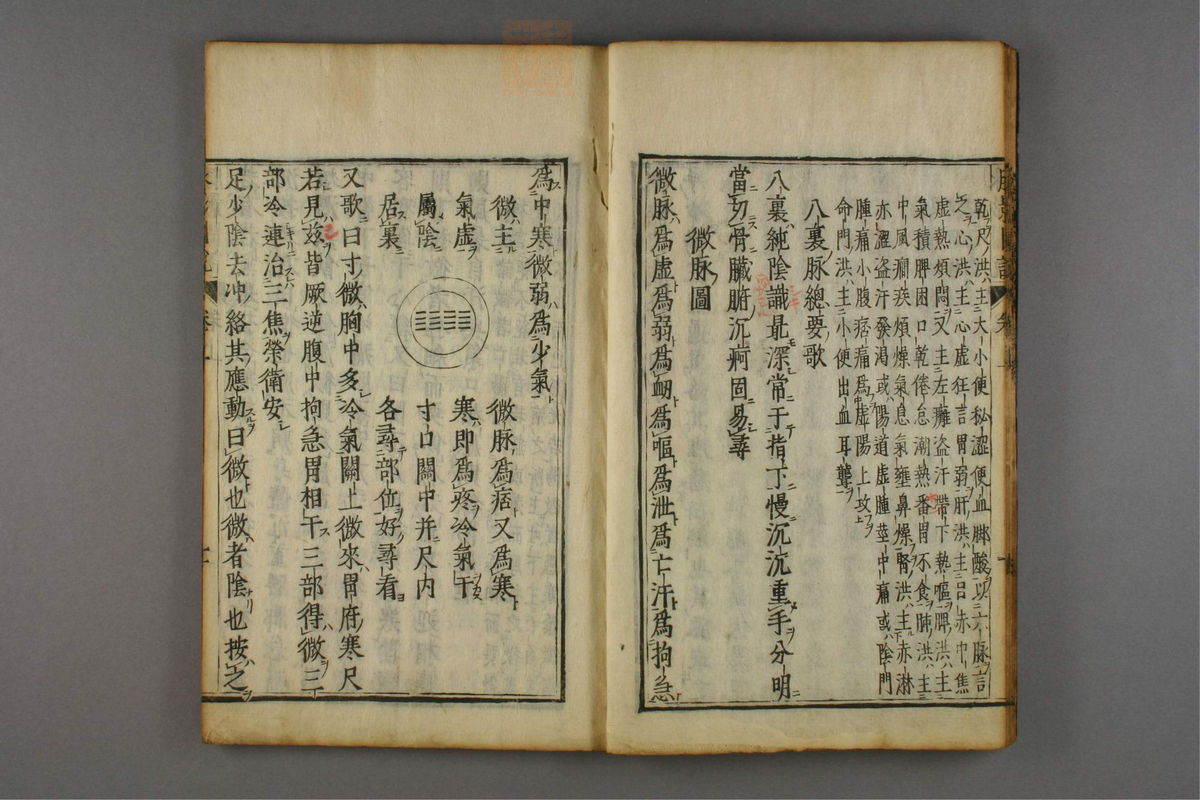 乾尺洪主大小便秘澀便血脚酸以六脉言
之心洪主心虛狂言胃弱肝洪主目赤中焦
虛熱煩悶又主左癱盜汗帶下熱嘔脾洪主
氣積脾困口乾倦怠潮熱番胃不食肺洪主
中風癇疾煩燥氣息氣壅鼻燥腎洪主赤淋
亦澀盜汗發渴或陽道虛腫莖中痛或陰門
腫痛小腹痞痛爲虛陽上攻
命門洪主小便出血耳聾
八裏脉總要歌
八裏純陰識最深常于指下慢沉沉重手分明
當切骨臟腑沉痾固易尋
微脉圖
微脉爲虛爲弱爲衂爲嘔爲泄爲亡汗爲拘急
爲中寒微弱爲少氣
微主
氣虛
屬陰
居裏
微脉爲痞又爲寒
寒即爲疼冷氣干
寸口關中并尺内
各尋部位好尋看
又歌曰寸微胸中多冷氣關上微來胃府寒尺
若見兹皆厥逆腹中拘急胃相干三部得微三
部冷連治三焦榮衛安
足少陰去冲絡其應動曰微也微者陰也按之